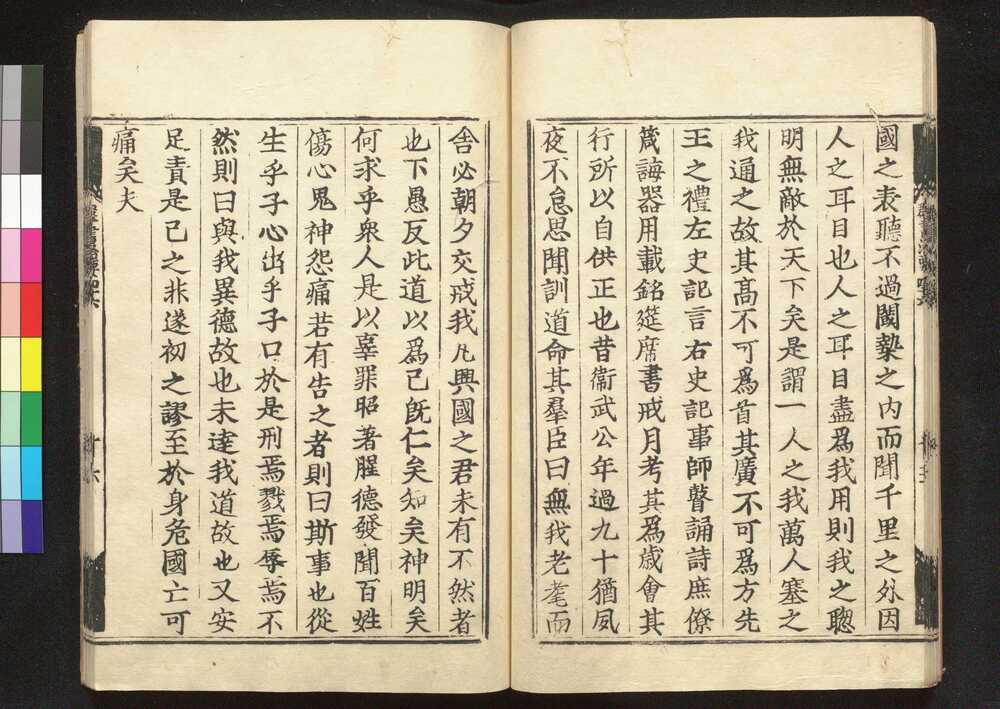 國之表聽不過閾槷之内而聞千里之外因
人之耳目也人之耳目盡爲我用則我之聰
明無敵於天下矣是謂一人之我萬人塞之
我通之故其髙不可爲首其廣不可爲方先
王之禮左史記言右史記事師瞽誦詩庶僚
箴誨器用載銘筵席書戒月考其爲歲會其
行所以自供正也昔衞武公年過九十猶夙
夜不怠思聞訓道命其羣臣曰無我老耄而
舍必朝夕交戒我凡興國之君未有不然者
也下愚反此道以爲己旣仁矣知矣神明矣
何求乎衆人是以辜罪昭著腥德發聞百姓
傷心鬼神怨痛若有告之者則曰斯事也從
生乎子心出乎子口於是刑焉戮焉辱焉不
然則曰與我異德故也未達我道故也又安
足責是己之非遂初之謬至於身危國亡可
痛矣夫
十六